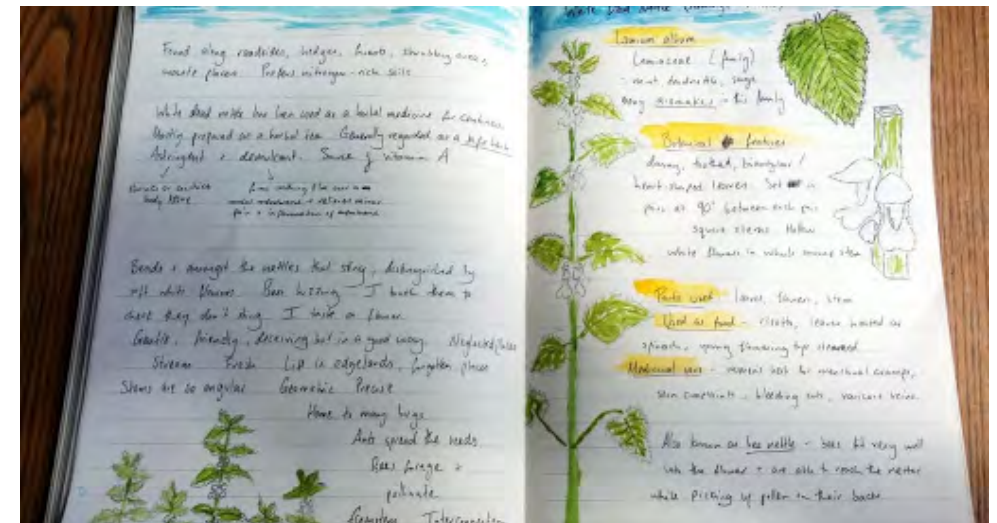 Found along roadsides, hedges, scrubby areas,
waste places. Prefers nitrogen-rich soils
White dead nettle has been used as a herbal medicine for centuries.
Mostly prepared as a herbal tea. Generally regarded as a safe herb
Astringent + demulcent. Source of vitamin A
body tissue
pain + inflammation of membrane
amongst the nettles that sting, distinguished by
soft white flowers Bees buzzing - I touch them to
check they don't sting I taste a flower
Gentle, friendly, deceiving but in a good way. Neglected places
Streams Fresh Lies in edgelands, forgotten places
Stems are so angular Geometric Precise
Home to many bugs
Ants spread the seeds
Bees forage +
pollinate
Ecosystem
White dead nettle
Lamium album
Lamiaceae (family)
family
Botanical features
downy, toothed,
heart-shaped leaves. Set in
pairs at 90° between each pair
Square stems Hollow
white flowers in whorls around stem
Parts used - leaves, flowers, stem
Used as food - leaves
spinach, young flowering tips steamed
Medicinal uses - menstrual cramps,
skin complaints, bleeding cuts, varicose veins.
Also known as bee nettle - bees fit very well
into the flower + are able to reach the nectar
while picking up pollen on their backs